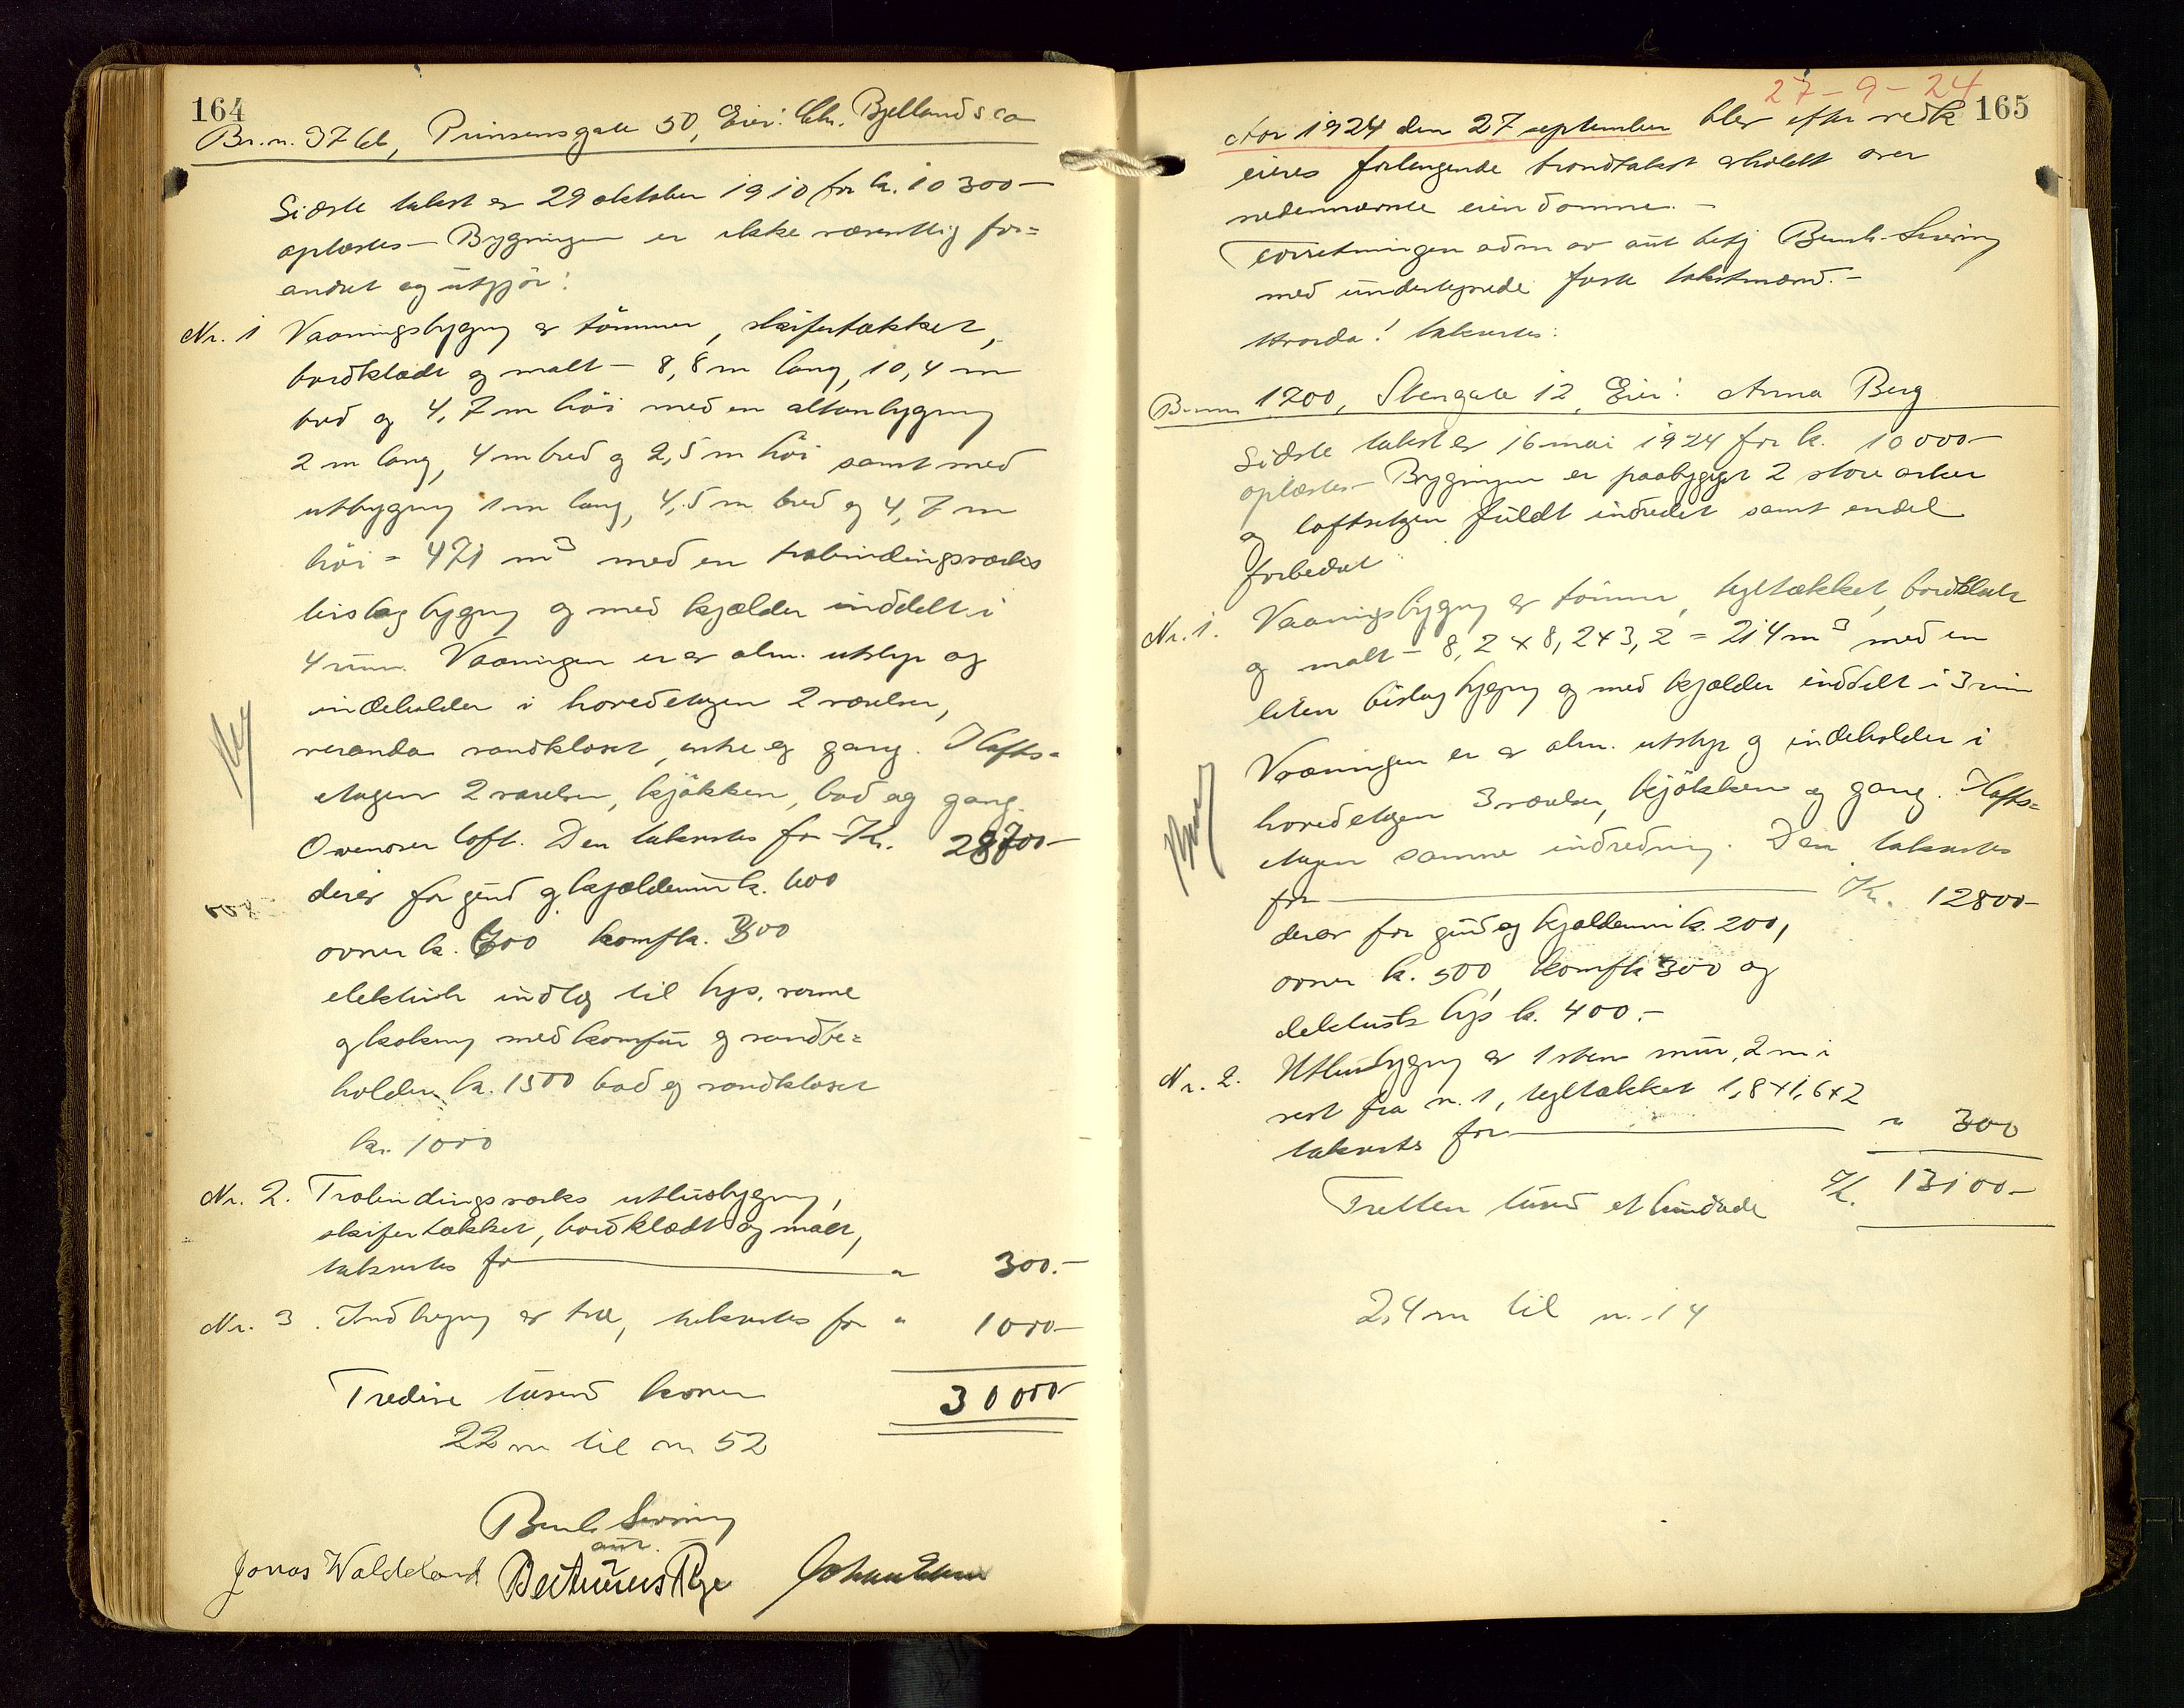 164
Br.n. 3766, Prinsensgate 50, Eier: Chr. Bjelland & Co
Sidste takst er 29 oktober 1910 for k. 10300-
oplæstes - Bygningen er ikke væsentlig for=
andret og utgjör:
Nr. 1 Vaaningsbygng er tömmer, skifertækket,
bordklædt og malt - 8,8 m lang, 10,4 m
bred og 4,7 m höi med en altanbygning
2 m lang, 4 m bred og 2,5 m höi samt med
utbygng 1 m lang, 4,5 m bred og 4,7 m
höi = 471 m³ med en træbindingsverks
bislagbygng og med kjælder inddelt i
4 rum. Vaaningen er av alm. utstyr og
indeholder i hovedetagen 2 værelser,
veranda vandkloset, entre og gang. Halfts-
etagen 2 værelser, kjökken, bad og gang.
Ovenover loft. Den takseres for Kr. 28700-
derav for grund og kjældermur k. 600
ovner k. 600 komf k. 300
elektrisk indlæg til lys, varme
og kokning med komfur og vandbe=
holder k. 1500 bad og vandkloset
kr. 1000
Nr. 2. Træbindingsverks uthusbygng,
skifertækket, bordklædt og malt,
takseres for " 300.-
Nr. 3. Indhegng av træ, takseres for " 1000-
Tredive tusend kroner 30000-
22 m til nr 52
Bernh. Severing
aut.
Jonas Waldeland
27-9-24
165
Aar 1924 den 27 september blev efter vedk
eieres forlangende brandtakst avholdt over
nedennævnte eiendomme. -
Forretningen adm av aut bef Bernh. Severing
med undertegnede faste takstmænd. -
Hvorda! takseres:
Br.nr 1200, Stengate 12, Eier: Anna Berg
Sidste takst er 16 mai 1924 for k. 10000-
oplæstes - Bygningen er paabygget 2 store arker
og loftsetagen fuldt indredet samt endel
forbedret
Nr. 1. Vaaningsbygng av tömmer, tegltækket, bordklædt
og malt - 8,2 x 8,2 x 3,2 = 214 m³ med en
liten bislagbygng og med kjælder inddelt i 3 rum
Vaaningen er av alm. utstyr og indeholder i
hovedetagen 3 værelser, kjökken og gang. Halfts=
etagen samme indredning. Den takseres
for Kr. 12800-
derav for grund og kjældermur k. 200,
ovner k. 500, komf k 300 og
elektrisk lys k. 400.-
Nr. 2. Uthusbygng av 1 stens mur, 2 m i
vest fra n. 1, tegltækket 1,8 x 1,6 x 2
takserts for " 300
Tretten tusend et hundrede Kr. 13100-
2,4 m til n. 14